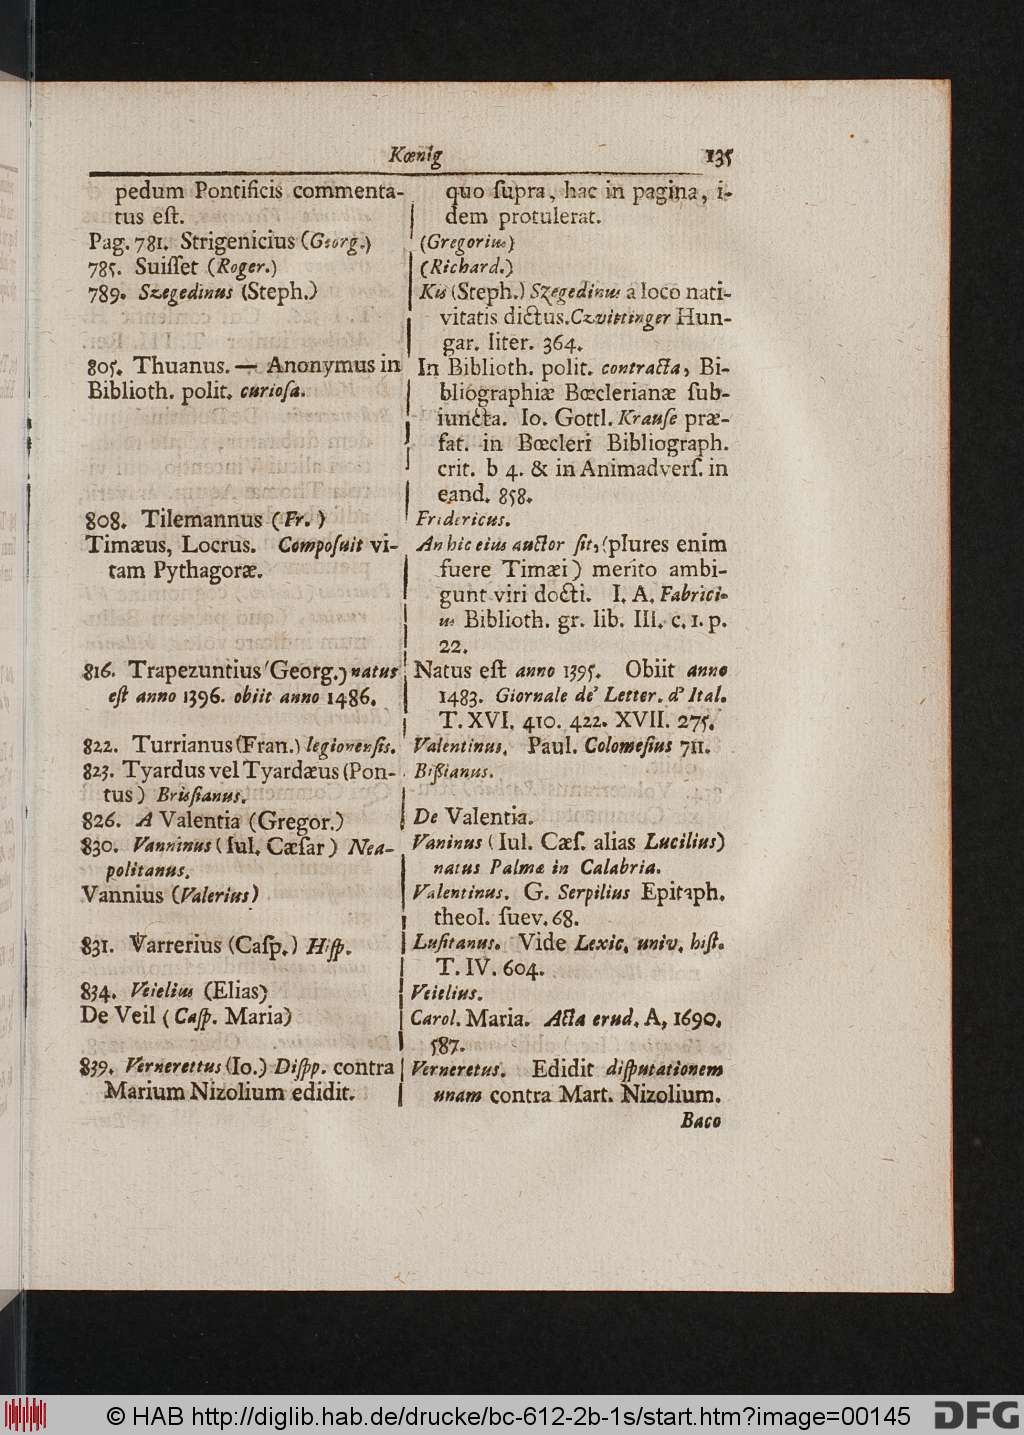 Kœnig 135
pedum Pontificis commenta-
tus eſt.
Pag. 781. Strigenicius (Georg.)
785. Suiſſet (Roger.)
789. Szegedinus (Steph.)
805. Thuanus. — Anonymus in
Biblioth. polit. curioſa.
808. Tilemannus (Fr.)
Timæus, Locrus. Compoſuit vi-
tam Pythagoræ.
816. Trapezuntius (Georg.) natus
eſt anno 1396. obiit anno 1486.
822. Turrianus (Fran.) legionenſis.
823. Tyardus vel Tyardæus (Pon-
tus) Briſianus.
826. A Valentia (Gregor.)
830. Vanninus (Iul. Cæſar) Nea-
politanus.
Vannius (Valerius)
831. Varrerius (Caſp.) Hiſp.
834. Veielius (Elias)
De Veil (Caſp. Maria)
839. Vernerettus (Io.) Diſpp. contra
Marium Nizolium edidit.
quo ſupra, hac in pagina, i-
dem protulerat.
(Gregorius)
(Richard.)
Kis (Steph.) Szegedinus a loco nati-
vitatis dictus. Czvittinger Hun-
gar. liter. 364.
In Biblioth. polit. contracta, Bi-
bliographiæ Bœclerianæ ſub-
iuncta. Io. Gottl. Krauſe præ-
fat. in Bœcleri Bibliograph.
crit. b 4. & in Animadverſ. in
eand. 858.
Fridericus.
An hic eius auctor ſit, (plures enim
fuere Timæi) merito ambi-
gunt viri docti. I. A. Fabrici-
us Biblioth. gr. lib. III. c. 1. p.
22.
Natus eſt anno 1395. Obiit anno
1483. Giornale de' Letter. d' Ital.
T. XVI. 410. 422. XVII. 275.
Valentinus. Paul. Colomeſius 711.
Biſſianus.
De Valentia.
Vaninus (Iul. Cæſ. alias Lucilius)
natus Palmæ in Calabria.
Valentinus. G. Serpilius Epitaph.
theol. ſuev. 68.
Luſitanus. Vide Lexic. univ. hiſt.
T. IV. 604.
Veielius.
Carol. Maria. Acta erud. A, 1690.
587.
Verneretus. Edidit diſputationem
unam contra Mart. Nizolium.
Baco
© HAB http://diglib.hab.de/drucke/bc-612-2b-1s/start.htm?image=00145 DFG